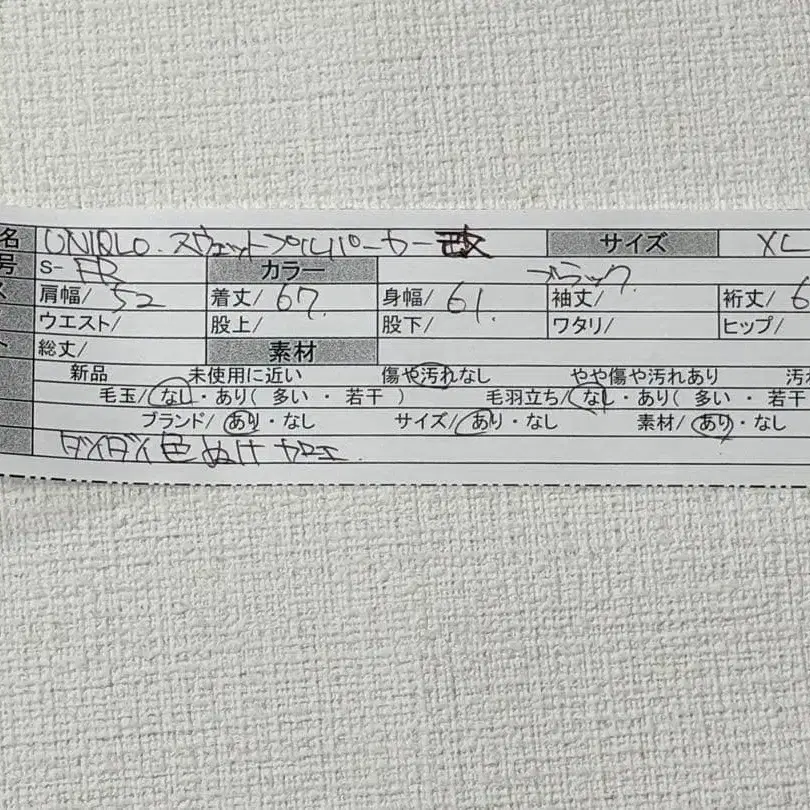 名 UNIQLO.スウェットプルパーカー改 サイズ XL
号 S- カラー ブラック
ス 肩幅/ 52 着丈/ 67. 身幅/ 61. 袖丈/ 裄丈/ 6
ウエスト/ 股上/ 股下/ ワタリ/ ヒップ/
ト 総丈/ 素材
新品 未使用に近い 傷や汚れなし やや傷や汚れあり 汚
毛玉/ なし・あり( 多い ・ 若干 ) 毛羽立ち/ なし・あり( 多い ・ 若干
ブランド/ あり・なし サイズ/ あり・なし 素材/ あり・なし
ダイダイ色ぬけ加工